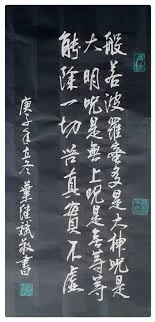 般若波羅蜜多是大神咒是
大明咒是無上咒是無等等
能除一切苦真實不虛
庚子年立冬 葉 斌敬書